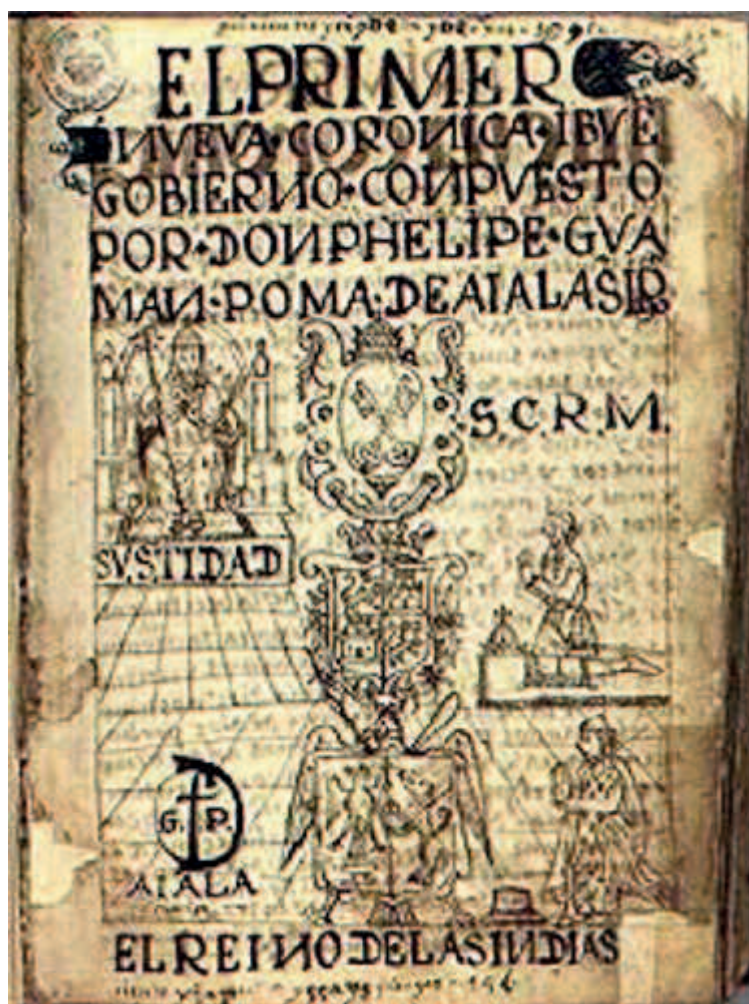 EL PRIMER
NVEVA·CORONICA·I BVE
GOBIERNO·CONPVESTO
POR·DON PHELIPE·GVA
MAN·POMA·DE AIALA
S.C.R.M.
SV.S.TIDAD
G. P.
AIALA
EL REINO DE LAS INDIAS